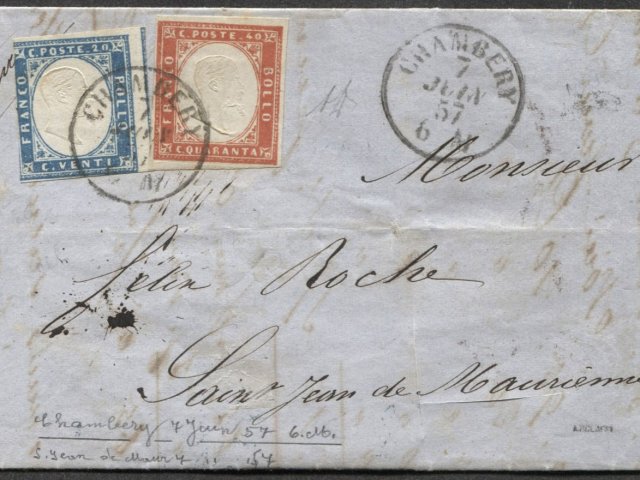 C. POSTE. 20
FRANCO
BOLLO
C. VENTI
C. POSTE. 40
FRANCO
BOLLO
C. QUARANTA
CHAMBERY
CHAMBERY
7
JUIN
57
6 M
Monsieur
Félix Roche
Saint Jean de Maurienne
Chambery 7 Juin 57 6.M.
S. Jean de Maur 7 .. .. 57